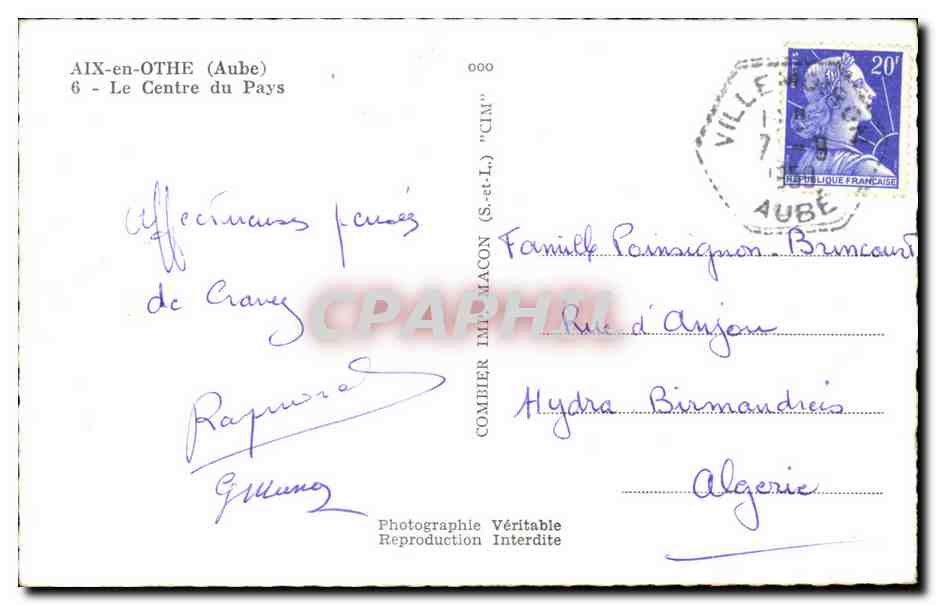 AIX-en-OTHE (Aube)
6 - Le Centre du Pays
ooo
20F
REPUBLIQUE FRANÇAISE
VILLE
7
AUBE
Affectueuses pensées
de
Raymond
COMBIER IMP. MACON (S.-et-L.) "CIM"
CPAPHIL
Famille Poinsignon-Brincourt
Rue d'Anjou
Hydra Birmandreis
Algerie
Photographie Véritable
Reproduction Interdite